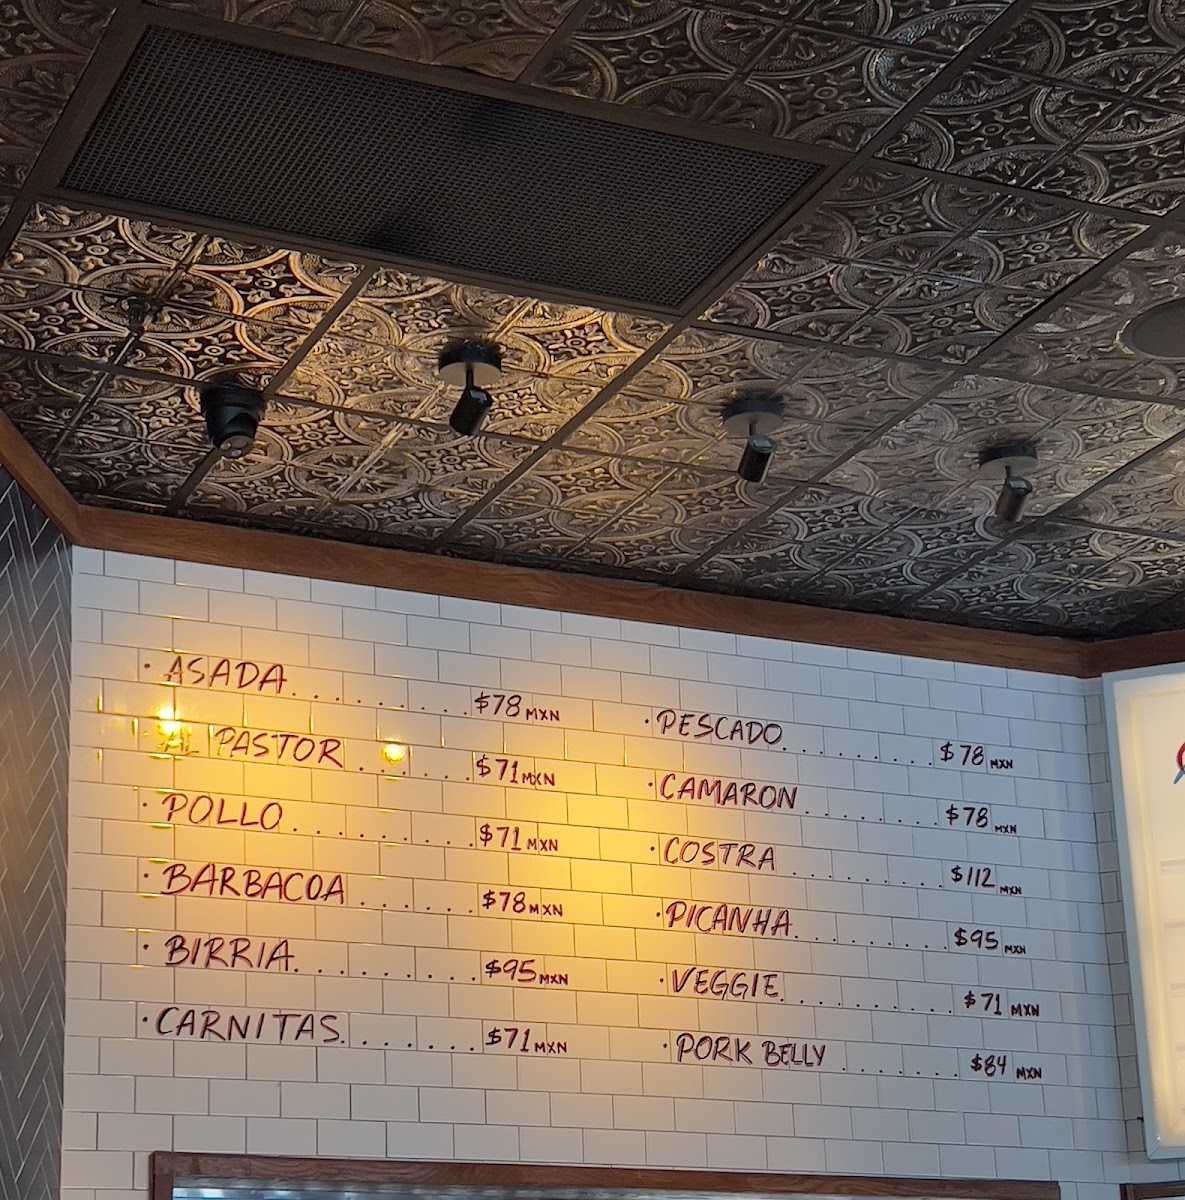 · ASADA. . . . . . . . . . $78 MXN
AL PASTOR . . . . . . . $71 MXN
· POLLO . . . . . . . . . . $71 MXN
· BARBACOA . . . . . . $78 MXN
· BIRRIA. . . . . . . . . . $95 MXN
· CARNITAS. . . . . . . $71 MXN
· PESCADO. . . . . . . . $78 MXN
· CAMARON . . . . . . . $78 MXN
· COSTRA . . . . . . . . $112 MXN
· PICANHA. . . . . . . . $95 MXN
· VEGGIE. . . . . . . . . $71 MXN
· PORK BELLY . . . . . . $84 MXN